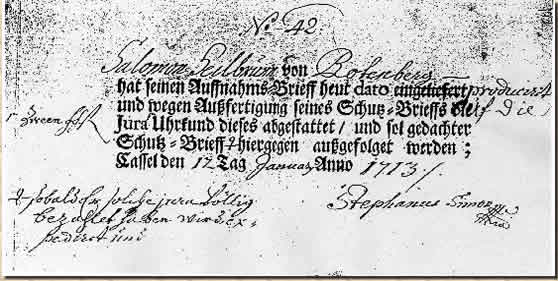 No. 42
Salomon Heilbrun von Rotenberg
hat seinen Auffnahms-Brieff heut dato eingeliefert producirt
und wegen Außfertigung seines Schutz-Brieffs die
Jura Uhrkund dieses abgestattet / und sol gedachter
Schutz-Brieff hiergegen außgefolget werden;
Cassel den 12 Tag Januar Anno 1713.
sobald er solche jura völlig
bezahlet haben wird
Stephanus